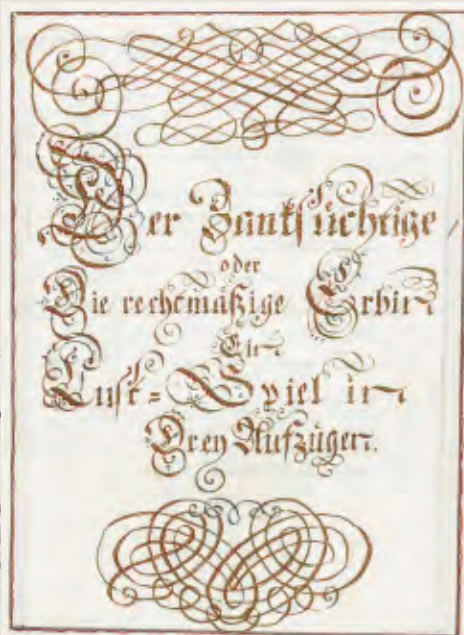 Der Zanksüchtige
oder
Die rechtmäßige Erbin
Ein
Lust=Spiel in
Drey Aufzügen.